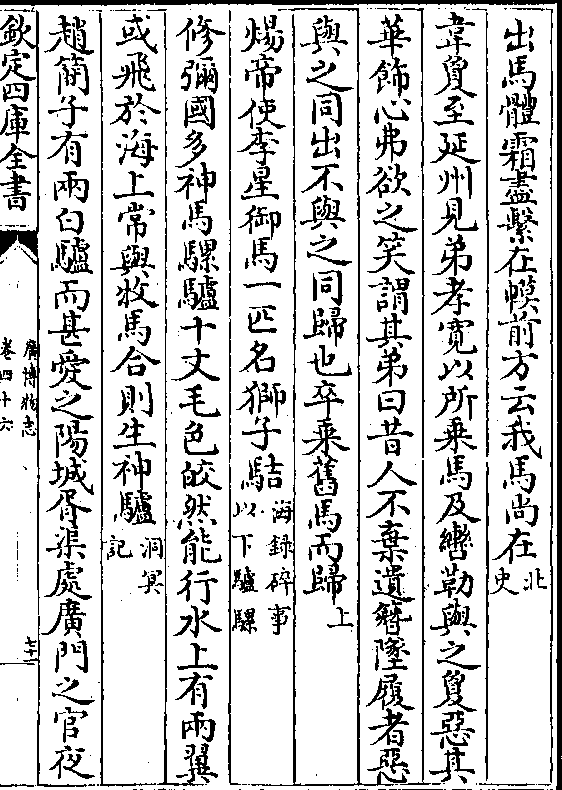 出馬體霜盡繫在幙前方云我馬尚在北史
韋敻至延州見弟孝寛以所乗馬及轡勒與之敻惡其
華飾心弗欲之笑謂其弟曰昔人不棄遺簪墜履者惡
與之同出不與之同歸也卒乘舊馬而歸上
煬帝使李星御馬一匹名獅子䭿海録碎事以下驢騾
修彌國多神馬騾驢十丈毛色皎然能行水上有兩翼
或飛於海上常與牧馬合則生神驢洞冥記
趙簡子有兩白驢而甚愛之陽城胥渠處廣門之官夜
欽定四庫全書
廣博物志
卷四十六